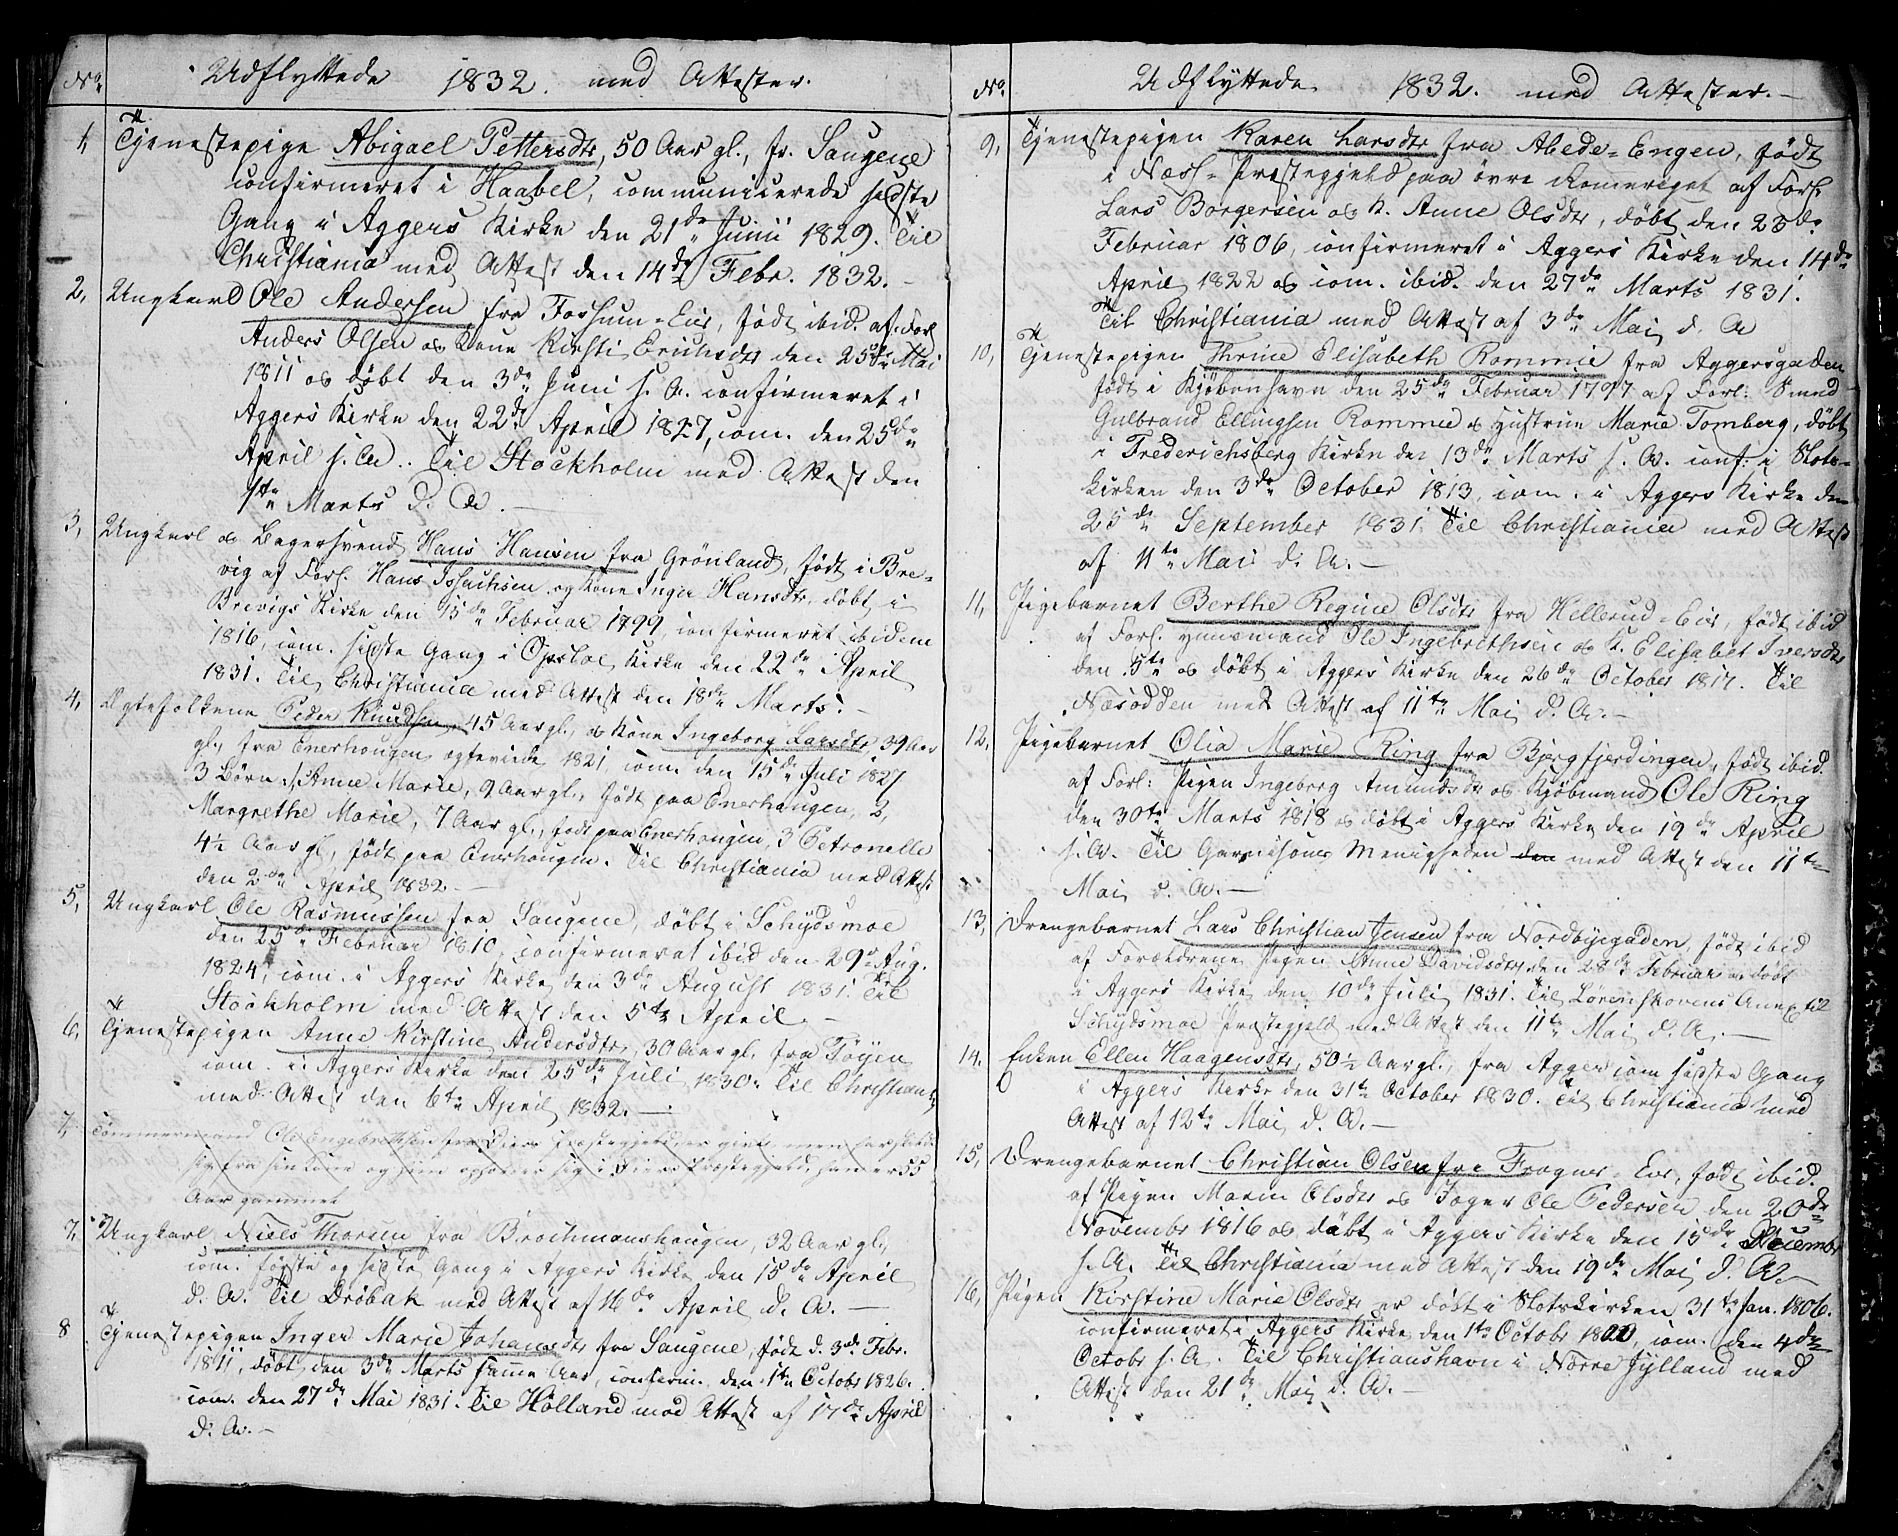 No. Udflyttede 1832. med Attester.
1, Tjenestepige Abigael Pettersdtr, 50 Aar gl., fr. Saugene
confirmeret i Haabel, communicerede sidste
Gang i Aggers Kirke den 21de Junii 1829. Til
Christiania med Attest den 14de Febr. 1832.
2, Ungkarl Ole Andersen fra Fossum-Eie, født ibid. af Forl
Anders Olsen og Kone Kirsti Erichsdtr den 25de Mai
1811 og døbt den 3de Juni s. A. confirmeret i
Aggers Kirke den 22de April 1827, com. den 25de
April s. A. Til Stockholm med Attest den
1te Marts d. A.
3, Ungkarl og Bagersvend Hans Hansen fra Grønland, født i Bre-
vig af Forl. Hans Issachsen og Kone Inger Hansdtr, døbt i
Brevigs Kirke den 15de Februar 1799, confirmeret ibidem
1816, com. sidste Gang i Opsloe Kirke den 22de April
1831. Til Christiania med Attest den 18de Marts.
4, Ægtefolkene Peder Knudsen, 45 Aar gl., og Kone Ingeborg Larsdtr, 39 Aar
gl., fra Enerhougen, egteviede 1821, com. den 15de Juli 1827
3 Børn 1, Anne Marie, 9 Aar gl., født paa Enerhaugen, 2,
Margrethe Marie, 7 Aar gl., født paa Enerhougen, 3 Petronelle
4½ Aar gl., født paa Enerhougen. Til Christiania med Attest
den 2de April 1832.
5, Ungkarl Ole Rasmussen fra Saugene, døbt i Schydsmoe
den 25de Februar 1810, confirmeret ibid den 29de Aug.
1824, com. i Aggers Kirke den 3de August 1831. Til
Stockholm med Attest den 5te April.
6, Tjenestepigen Anne Kirstine Andersdtr, 30 Aar gl. fra Tøyen
com. i Aggers Kirke den 25de Juli 1830. Til Christiania
med Attest den 6te April 1832.
7, Tømmermand Ole Engebrethsen fra Præstegjeld er givt men har skildt
sig fra sin Kone og hun opholder sig i Præstegjeld, han er 55
Aar gammel
7, Ungkarl Niels Thorsen fra Brochmanshougen, 32 Aar gl.,
com. første og sidste Gang i Aggers Kirke den 15de April
d. A. Til Drøbak med Attest af 16de April d. A.
8 Tjenestepigen Inger Marie Johansdtr fra Saugene, født d. 3de Febr.
1811, døbt den 3de Marts samme Aar, confirm. den 1te Octobr 1826.
com. den 27de Mai 1831. Til Holland med Attest af 17de April
d. A.
No. Udflyttede 1832. med Attester.
9, Tjenestepigen Karen Larsdtr fra Abede-Engen, født
i Næss-Præstegjeld paa øvre Romeriget af Forl.
Lars Borgersen og K. Anne Olsdtr, døbt den 23de
Februar 1806, confirmeret i Aggers Kirke den 14de
April 1822 og com. ibid. den 27de Marts 1831.
Til Christiania med Attest af 3de Mai d. A
10, Tjenestepigen Thrine Elisabeth Rommie fra Aggersgaden
født i Kjøbenhavn den 25de Februar 1797 af Forl: Smed
Gulbrand Ellingsen Rommie og Hustrue Marie Tomberg, døbt
i Frederichsberg Kirke den 13de Marts s. A. conf: i Slots-
kirken den 3de October 1813, com. i Aggers Kirke den
25de September 1831. Til Christiania med Attest
af 4te Mai d. A.
11, Pigebarnet Berthe Regine Olsdtr fra Hellerud-Eie, født ibid
af Forl. Huusmand Ole Ingebrethsen og K. Elisabet Iversdtr
den 5te og døbt i Aggers Kirke den 26de October 1817. Til
Næsodden med Attest af 11te Mai d. A.
12, Pigebarnet Olia Marie Ring fra Bjergfjerdingen, født ibid.
af Forl: Pigen Ingeborg Amundsdtr og Kjøbmand Ole Ring
den 30te Marts 1818 og døbt i Aggers Kirke den 19de April
s. A. Til Garnisons Menigheden den med Attest den 11te
Mai d. A.
13, Drengebarnet Lars Christian Jensen fra Nordbyegaden, født ibid
af Forældrene Pigen Anne Davidsdtr den 28de Februar og døbt
i Aggers Kirke den 10de Juli 1831. Til Lørenskovens Annex til
Schydsmoe Præstegjeld med Attest den 11te Mai d. A.
14, Enken Ellen Haagensdtr, 50½ Aar gl., fra Agger com sidste Gang
i Aggers Kirke den 31te October 1830. Til Christiania med
Attest af 12te Mai d. A.
15, Drengebarnet Christian Olsen fra Frogner-Eie, født ibid.
af Pigen Maren Olsdtr og Jæger Ole Pedersen den 20de
Novembr 1816 og døbt i Aggers Kirke den 15de Decembr
s. A. Til Christiania med Attest den 19de Mai d. A.
16, Pigen Kirstine Marie Olsdtr er døbt i Slotskirken 31te Jan. 1806.
confirmeret i Aggers Kirke den 1te Octobr 1820, com. den 4de
Octobr s. A. Til Christianshavn i Nørre Jylland med
Attest den 21de Mai d. A.